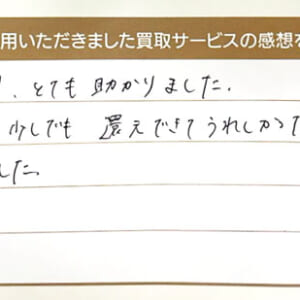 用いただきました買取サービスの感想を
、とても助かりました.
少しでも 還元できてうれしかった
した。